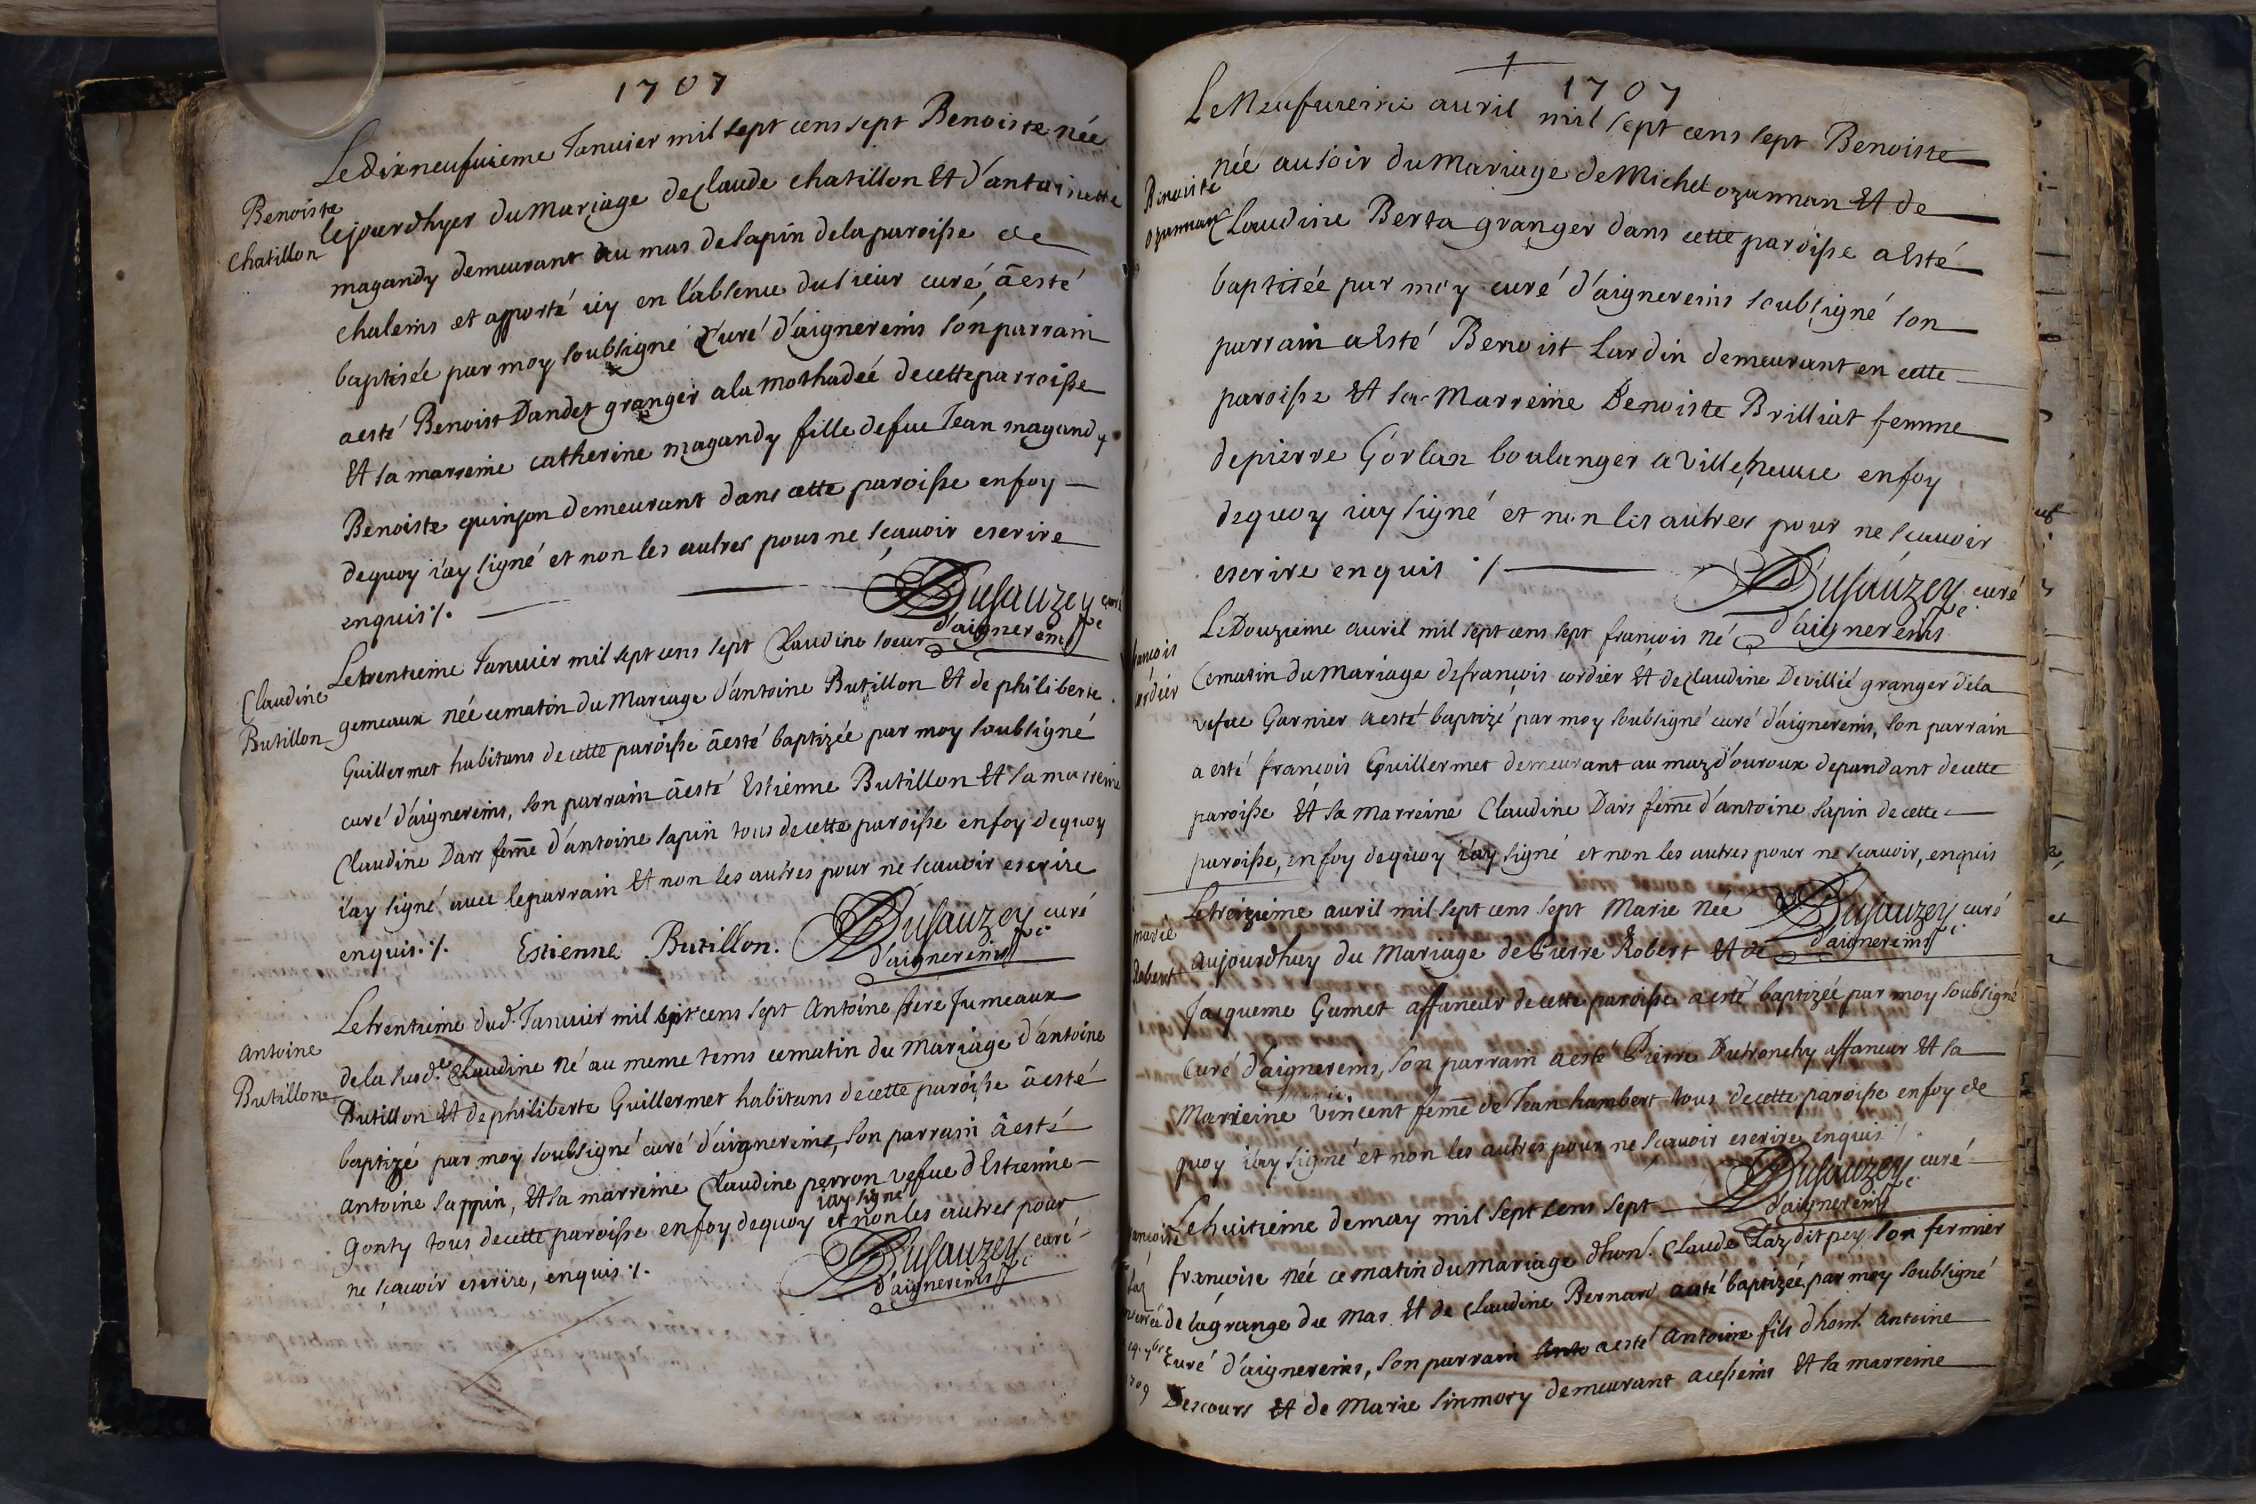 1707
Le dixneufuieme Januier mil sept cens sept Benoiste née
Benoiste
Chatillon
lejourdhyer du Mariage de Claude chatillon Et d'antoinette
magandy demeurant au mas de sapin de la paroisse de
chaleins et apporté icy en l'absence du sieur curé, a esté
baptisée par moy soubsigné Curé d'aignereins son parrain
a esté Benoist Dandet granger a la Mothadeé de cette parroisse
Et sa marreine catherine magandy fille de fue Jean magandy
Benoiste quinson demeurant dans cette paroisse en foy
dequoy i'ay signé et non les autres pour ne sçauoir escrire
enquis ./.
DuSauzey curé
d'aignereins
Le trentieme Januier mil sept cens sept Claudine soeur
Claudine
Butillon
gemeaux née cematin du Mariage d'antoine Butillon Et de philiberte
Guillermet habitans de cette paroisse a esté baptizée par moy soubsigné
curé d'aignereins, son parrain a esté Estienne Butillon Et sa marreine
Claudine Dars fem̃e d'antoine sapin tous de cette paroisse en foy dequoy
i'ay signé auec le parrain Et non les autres pour ne scauoir escrire
enquis ./. Estienne Butillon. DuSauzey curé
d'aignereins
Le trentieme dud. Januier mil sept cens sept Antoine frere Jumeaux
Antoine
Butillon
de la susd.e Claudine né au meme tems cematin du Mariage d'antoine
Butillon Et de philiberte Guillermet habitans de cette paroisse a esté
baptizé par moy soubsigné curé d'aignereins, son parrain a esté
Antoine sappin, Et sa marreine Claudine perron vefue d'Estienne
i'ay signé
Gonty tous de cette paroisse en foy dequoy et non les autres pour
ne sçauoir escrire, enquis ./.
DuSauzey curé
d'aignereins
1707
Le Neufuieme auril mil sept cens sept Benoiste
née au soir du Mariage de Michel ozanman Et de
Benoiste
ozanman
Claudine Berta granger dans cette paroisse a Esté
baptisée par moy curé d'aignereins soubsigné son
parrain a Esté Benoist Lardin demeurant en cette
paroisse Et sa Marreine Benoiste Brilliat femme
de pierre Gorlaz boulanger a Villeneuue en foy
dequoy i'ay signé et non les autres pour ne scauoir
escrire enquis ./.
DuSauzey curé
d'aignereins
Le Douzieme auril mil sept cens sept françois né
françois
cordier
Cematin du Mariage de françois cordier Et de Claudine Devillié granger de la
vefue Garnier a esté baptizé par moy soubsigné curé d'aignereins, son parrain
a esté françois Guillermet demeurant au maz d'ouroux depandant de cette
paroisse Et sa Marreine Claudine Dars fem̃e d'antoine sapin de cette
paroisse, en foy dequoy i'ay signé et non les autres pour ne scauoir, enquis
DuSauzey curé
d'aignereins
Le treizieme auril mil sept cens sept Marie Née
Marie
Robert
aujourdhuy du Mariage de Pierre Robert Et de
Jacqueme Gumet affaneur de cette paroisse a esté baptizée par moy soubsigné
Curé d'aignereins, son parrain a esté Pierre Dutronchy affaneur Et sa
Marreine Vincent fem̃e de Jean hambert tous de cette paroisse en foy de
quoy i'ay signé et non les autres pour ne scauoir escrire enquis
DuSauzey curé
d'aignereins
Le huitieme de may mil sept cens sept
françoise née ce matin du mariage d'hon. Claude Laz dit pey son fermier
de la grange du Mas Et de Claudine Bernard a esté baptizée par moy soubsigné
Curé d'aignereins, son parrain a esté Antoine fils d'hon. Antoine
Descours Et de Marie sinmory demeurant a cesseins Et sa marreine